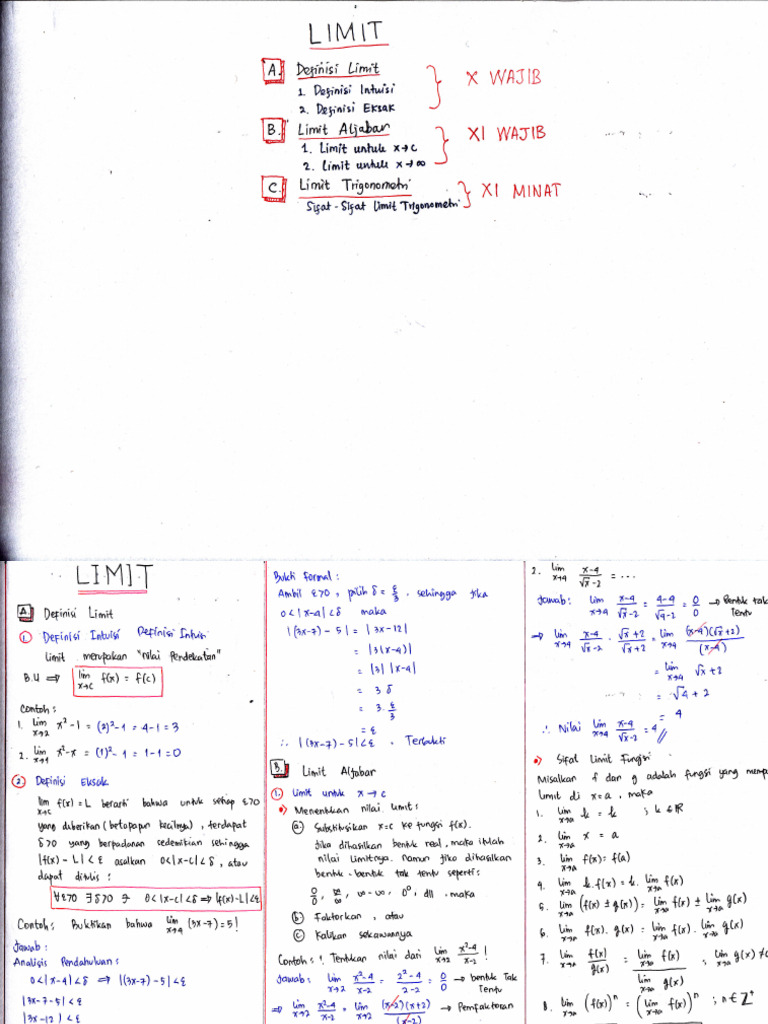 LIMIT
A. Definisi Limit
1. Definisi Intuisi
2. Definisi Eksak
X WAJIB
B. Limit Aljabar
1. Limit untuk x→c
2. Limit untuk x→∞
XI WAJIB
C. Limit Trigonometri
Sifat-Sifat Limit Trigonometri
XI MINAT
LIMIT
A. Definisi Limit
1. Definisi Intuisi Definisi Intuisi
Limit merupakan "nilai Pendekatan"
B.U ⇒ lim x→c f(x) = f(c)
Contoh:
1. lim x→2 x²-1 = (2)²-1 = 4-1 = 3
2. lim x→1 x²-x = (1)²-1 = 1-1 = 0
2. Definisi Eksak
lim x→c f(x) = L berarti bahwa untuk setiap ε>0
yang diberikan (betapapun kecilnya), terdapat
δ>0 yang berpadanan sedemikian sehingga
|f(x)-L|<ε asalkan 0<|x-c|<δ, atau
dapat ditulis:
∀ε>0 ∃δ>0 ∋ 0<|x-c|<δ ⇒ |f(x)-L|<ε
Contoh: Buktikan bahwa lim x→4 (3x-7)=5!
Jawab:
Analisis Pendahuluan:
0<|x-4|<δ ⇒ |(3x-7)-5|<ε
|3x-7-5|<ε
|3x-12|<ε
Bukti Formal:
Ambil ε>0, pilih δ = ε/3, sehingga jika
0<|x-4|<δ maka
|(3x-7)-5| = |3x-12|
= |3(x-4)|
= |3| |x-4|
= 3 δ
= 3. ε/3
= ε
∴ |(3x-7)-5|<ε. Terbukti
B. Limit Aljabar
1. Limit untuk x→c
Menentukan nilai limit:
(a) Substitusikan x=c ke fungsi f(x).
Jika dihasilkan bentuk real, maka itulah
nilai limitnya. Namun jika dihasilkan
bentuk-bentuk tak tentu seperti:
0/0, ∞/∞, ∞-∞, 0⁰, dll. maka
(b) Faktorkan, atau
(c) Kalikan sekawannya
Contoh: 1. Tentukan nilai dari lim x→2 x²-4/x-2!
Jawab: lim x→2 x²-4/x-2 = 2²-4/2-2 = 0/0 → bentuk Tak Tentu
⇒ lim x→2 x²-4/x-2 = lim x→2 (x-2)(x+2)/(x-2) → Pemfaktoran
2. lim x→4 x-4/√x-2 = ...
Jawab: lim x→4 x-4/√x-2 = 4-4/√4-2 = 0/0 → Bentuk tak Tentu
⇒ lim x→4 x-4/√x-2 . √x+2/√x+2 = lim x→4 (x-4)(√x+2)/(x-4)
= lim x→4 √x+2
= √4+2
= 4
∴ Nilai lim x→4 x-4/√x-2 = 4
Sifat Limit Fungsi
Misalkan f dan g adalah fungsi yang mempu
limit di x=a, maka
1. lim x→a k = k ; k∈ℝ
2. lim x→a x = a
3. lim x→a f(x) = f(a)
4. lim x→a k.f(x) = k. lim x→a f(x)
5. lim x→a (f(x) ± g(x)) = lim x→a f(x) ± lim x→a g(x)
6. lim x→a f(x). g(x) = lim x→a f(x). lim x→a g(x)
7. lim x→a f(x)/g(x) = lim x→a f(x)/lim x→a g(x) ; lim x→a g(x) ≠
8. lim x→a (f(x))ⁿ = (lim x→a f(x))ⁿ ; n∈ℤ⁺